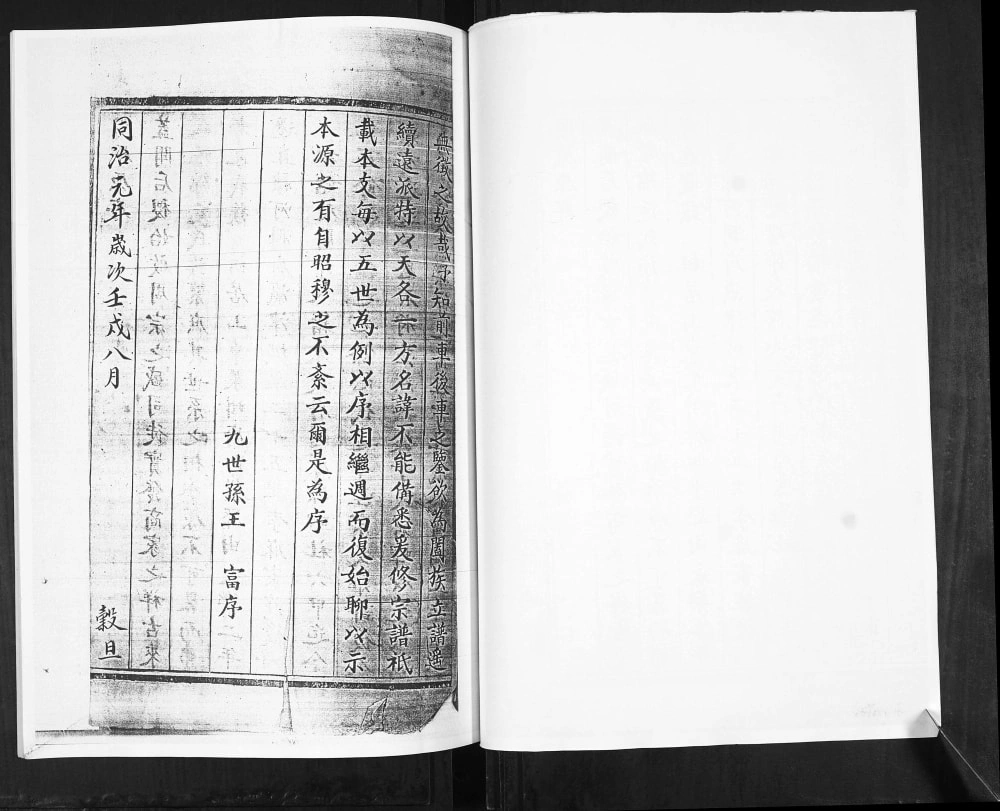 無徵之故哉予知前車後車之鑒欲為闔族立譜遥
續遠派特以天各一方名諱不能備悉爰修宗譜祇
載本支每以五世為例以序相繼週而復始聊以示
本源之有自昭穆之不紊云爾是為序
九世孫王 富序
同治元年歲次壬戌八月 穀旦